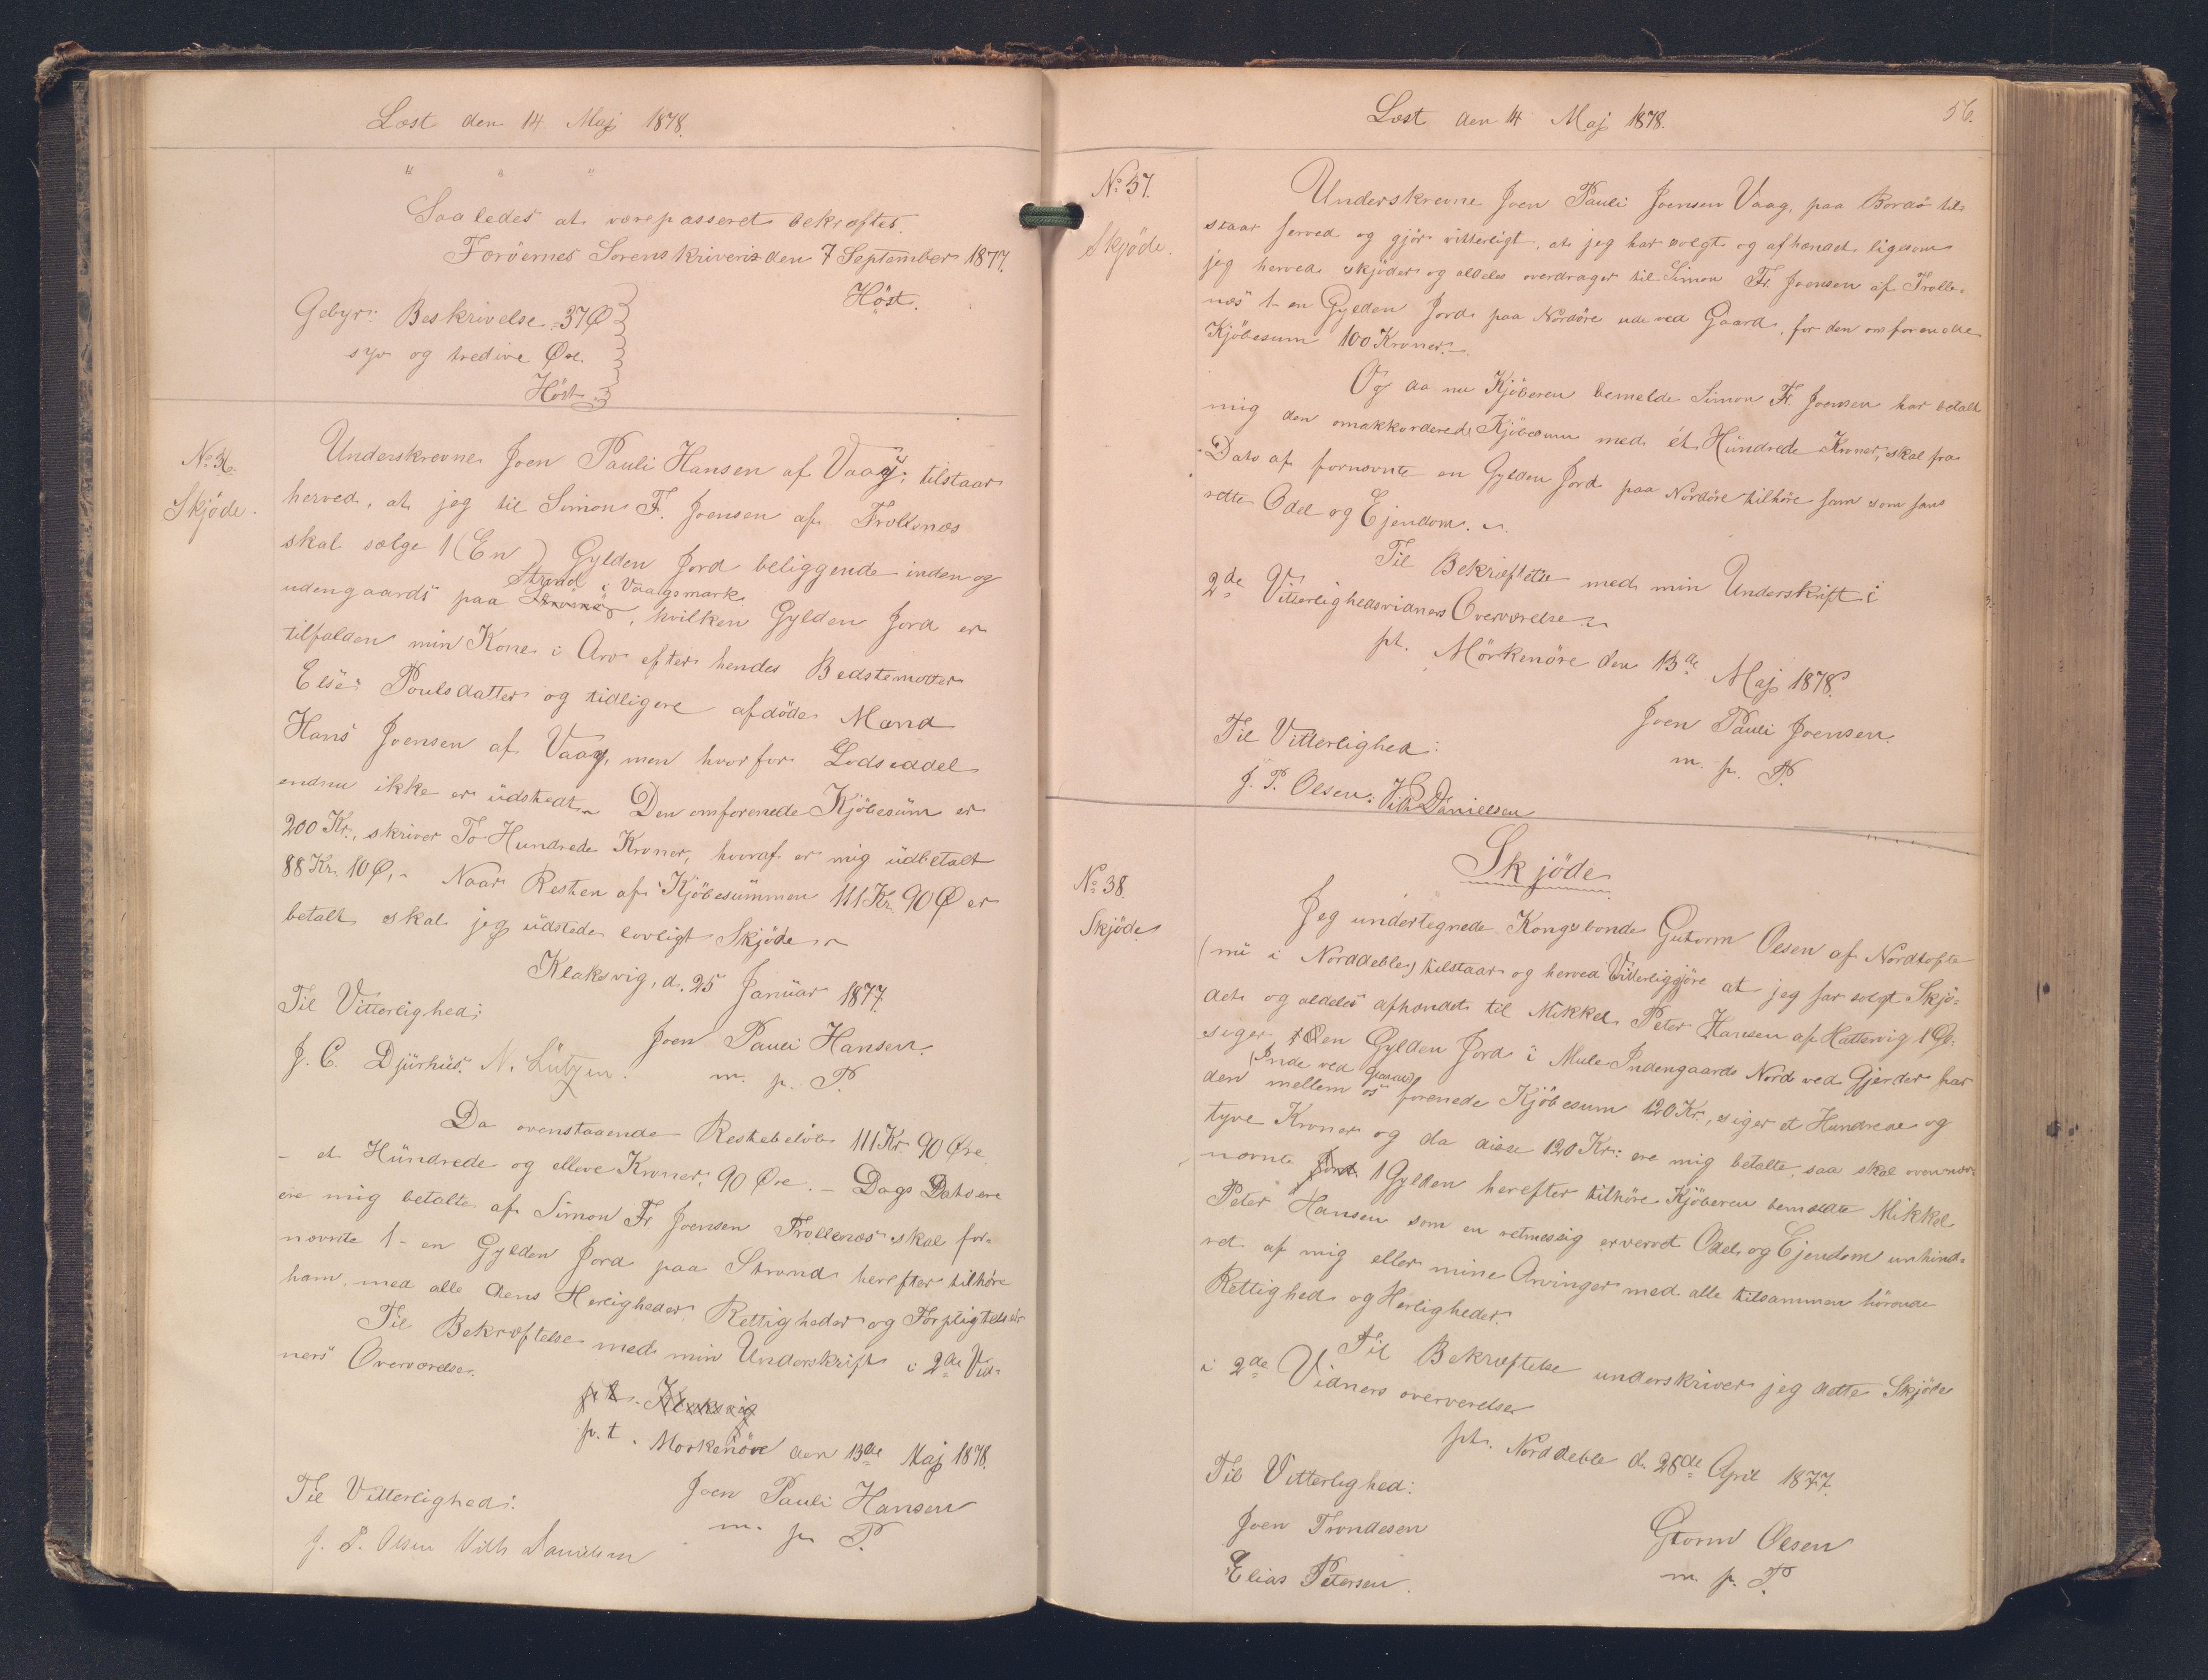 Læst den 14 Maj 1878.
" " "
Saaledes at være passeret bekræftes.
Færöernes Sorenskriveri den 7 September 1877.
Höst.
Gebyr: Beskrivelse = 37 Ø
syv og tredive Øre.
Höst.
No 36.
Skjöde.
Underskrevne Joen Pauli Hansen af Vaag; tilstaar
herved, at jeg til Simon F. Joensen af Trollenæs
skal sælge 1 (En) Gylden Jord beliggende inden og
Strand i Vaagsmark
udengaards paa , hvilken Gylden Jord er
tilfalden min Kone i Arv efter hendes Bedstemoder
Else Poulsdatter og tidligere afdöde Mand
Hans Joensen af Vaag, men hvorfor Lodseddel
endnu ikke er üdstedt. Den omforenede Kjöbesüm er
200 Kr., skriver To Hundrede Kroner, hvoraf er mig üdbetalt
88 Kr. 10 Ø, - Naar Resten af Kjöbesümmen 111 Kr. 90 Ø er
betalt skal jeg üdstede lovligt Skjöde.
Klaksvig, d. 25 Janüar 1877.
Til Vitterlighed:
Joen Pauli Hansen.
J. C. Djürhüs. N. Lützen.
m. p. P.
Da ovenstaaende Restebelöb 111 Kr 90 Øre
- et Hündrede og elleve Kroner, 90 Øre. - Dags Dato ere
ere mig betalte af Simon Fr. Joensen Trollenæs skal for-
nævnte 1 - en Gylden Jord paa Strand herefter tilhöre
ham, med alle dens Herligheder Rettigheder og Forpligtelser
Til Bekræftelse med min Underskrift i 2de Vid-
ners Overværelse.
p.t. Klaksvig
p.t. Morkenöre den 13de Maj 1878.
Til Vitterlighed:
Joen Pauli Hansen
m. p. P.
J. P. Olsen Vilh Danielsen
Læst den 14 Maj 1878.
56.
No 37.
Skjöde.
Underskrevne Joen Pauli Joensen Vaag, paa Bordö til-
staar herved og gjör vitterligt, at jeg har solgt og afhændet ligesom
jeg herved skjöder og aldeles overdrager til Simon Fr. Joensen af Trolle-
næs 1 - en Gylden Jord paa Nordöre ude ved Gaard, for den omforenede
Kjöbesum 100 Kroner. -
Og da nu Kjöberen bemelde Simon Fr. Joensen har betalt
mig den omakkorderede Kjöbesum med ét Hündrede Kroner, skal fra
Dato af fornævnte en Gylden Jord paa Nordöre tilhöre ham som hans
rette Odel og Ejendom.
Til Bekræftelse med min Underskrift i
2de Vitterlighedsvidners Overværelse.
pt. Mörkenöre den 13de Maj 1878.
Joen Pauli Joensen.
m. p. P.
Til Vitterlighed:
J. P. Olsen. Vilh Danielsen
No 38.
Skjöde
Skjöde
Jeg undertegnede Kongsbonde Gutorm Olsen af Nordtofte
(nü i Norddeble) tilstaar og herved Vitterliggjöre at jeg har solgt Skjö-
det og aldeles afhændet til Mikkel Peter Hansen af Hattervig 1 G.
siger en Gylden Jord i Mule Indengaards Nord ved Gjerder har
(Inde ved Gaard)
den mellem os forenede Kjöbesum 120 Kr., siger et Hundrede og
tyve Kroner og da disse 120 Kr: ere mig betalte, saa skal ovennæv-
nævnte 1 Gylden herefter tilhöre Kjöberen bemeldte Mikkel
Peter Hansen som en retmessig erværvet Odel og Ejendom unhind-
ret af mig eller mine Arvinger med alle tilsammen hörende
Rettighed og Herligheder.
Til Bekræftelse underskriver jeg dette Skjöde
i 2de Vidners oververelse
pt. Norddeble d. 28de April 1877.
Til Vitterlighed:
Joen Trondesen
Gtorm Olsen
Elias Petersen.
m. p. P.